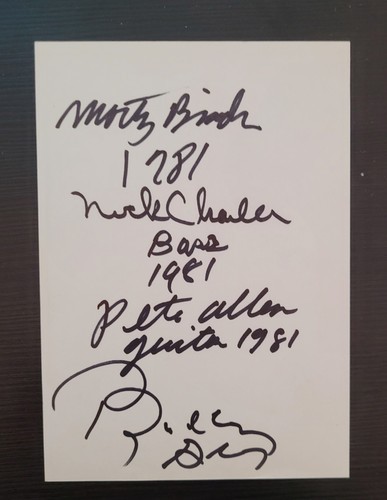 Morty
1981
Nick Charles
Bass
1981
Pete Allen
guitar 1981
Billy